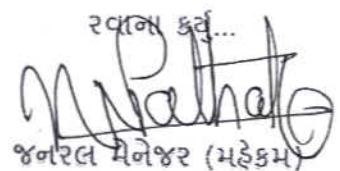 રવાના કર્યું...
જનરલ મેનેજર (મહેકમ)